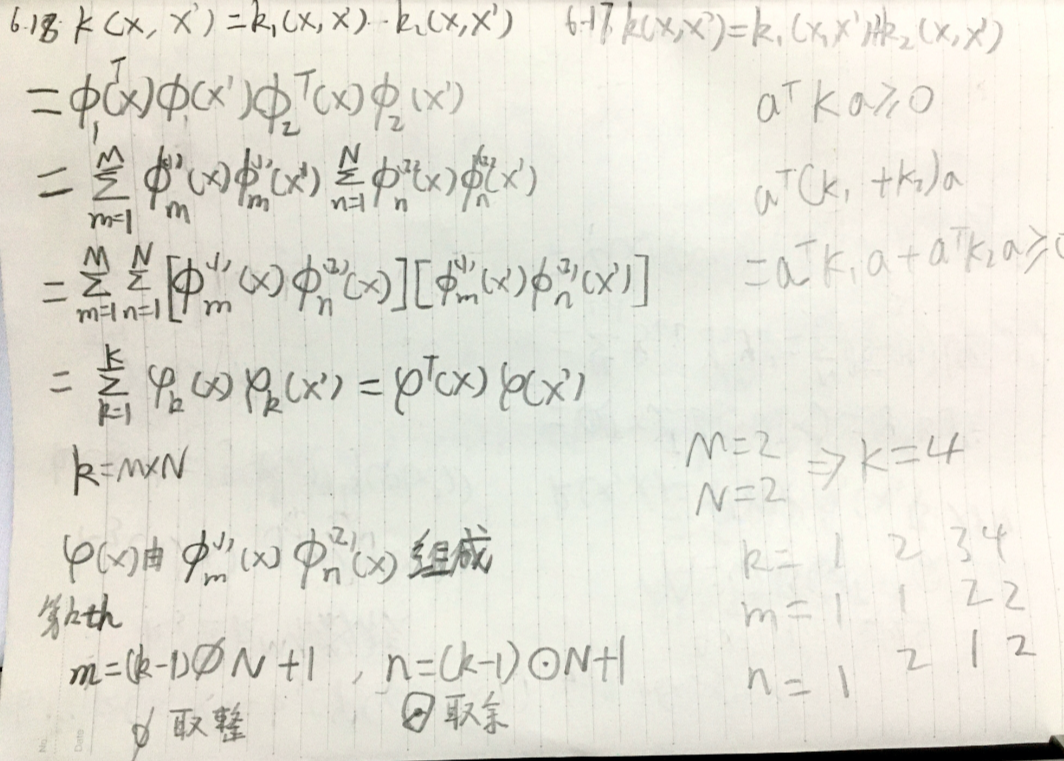 6.18 k(x, x') = k₁(x, x') · k₂(x, x')
= ϕ₁ᵀ(x) ϕ₁(x') ϕ₂ᵀ(x) ϕ₂(x')
= Σ_{m=1}^{M} ϕ_m^{(1)}(x) ϕ_m^{(1)}(x') Σ_{n=1}^{N} ϕ_n^{(2)}(x) ϕ_n^{(2)}(x')
= Σ_{m=1}^{M} Σ_{n=1}^{N} [ϕ_m^{(1)}(x) ϕ_n^{(2)}(x)] [ϕ_m^{(1)}(x') ϕ_n^{(2)}(x')]
= Σ_{k=1}^{K} φ_k(x) φ_k(x') = φᵀ(x) φ(x')
k = M×N
φ(x) 由 ϕ_m^{(1)}(x) ϕ_n^{(2)}(x) 组成
m = (k-1) ⊘ N + 1 , n = (k-1) ⊙ N + 1
⊘ 取整 ⊙ 取余
6.17 k(x, x') = k₁(x, x') + k₂(x, x')
aᵀ K a ≥ 0
aᵀ(k₁ + k₂)a
= aᵀ k₁ a + aᵀ k₂ a ≥ 0
M = 2
N = 2 ⇒ K = 4
k = 1 2 3 4
m = 1 1 2 2
n = 1 2 1 2